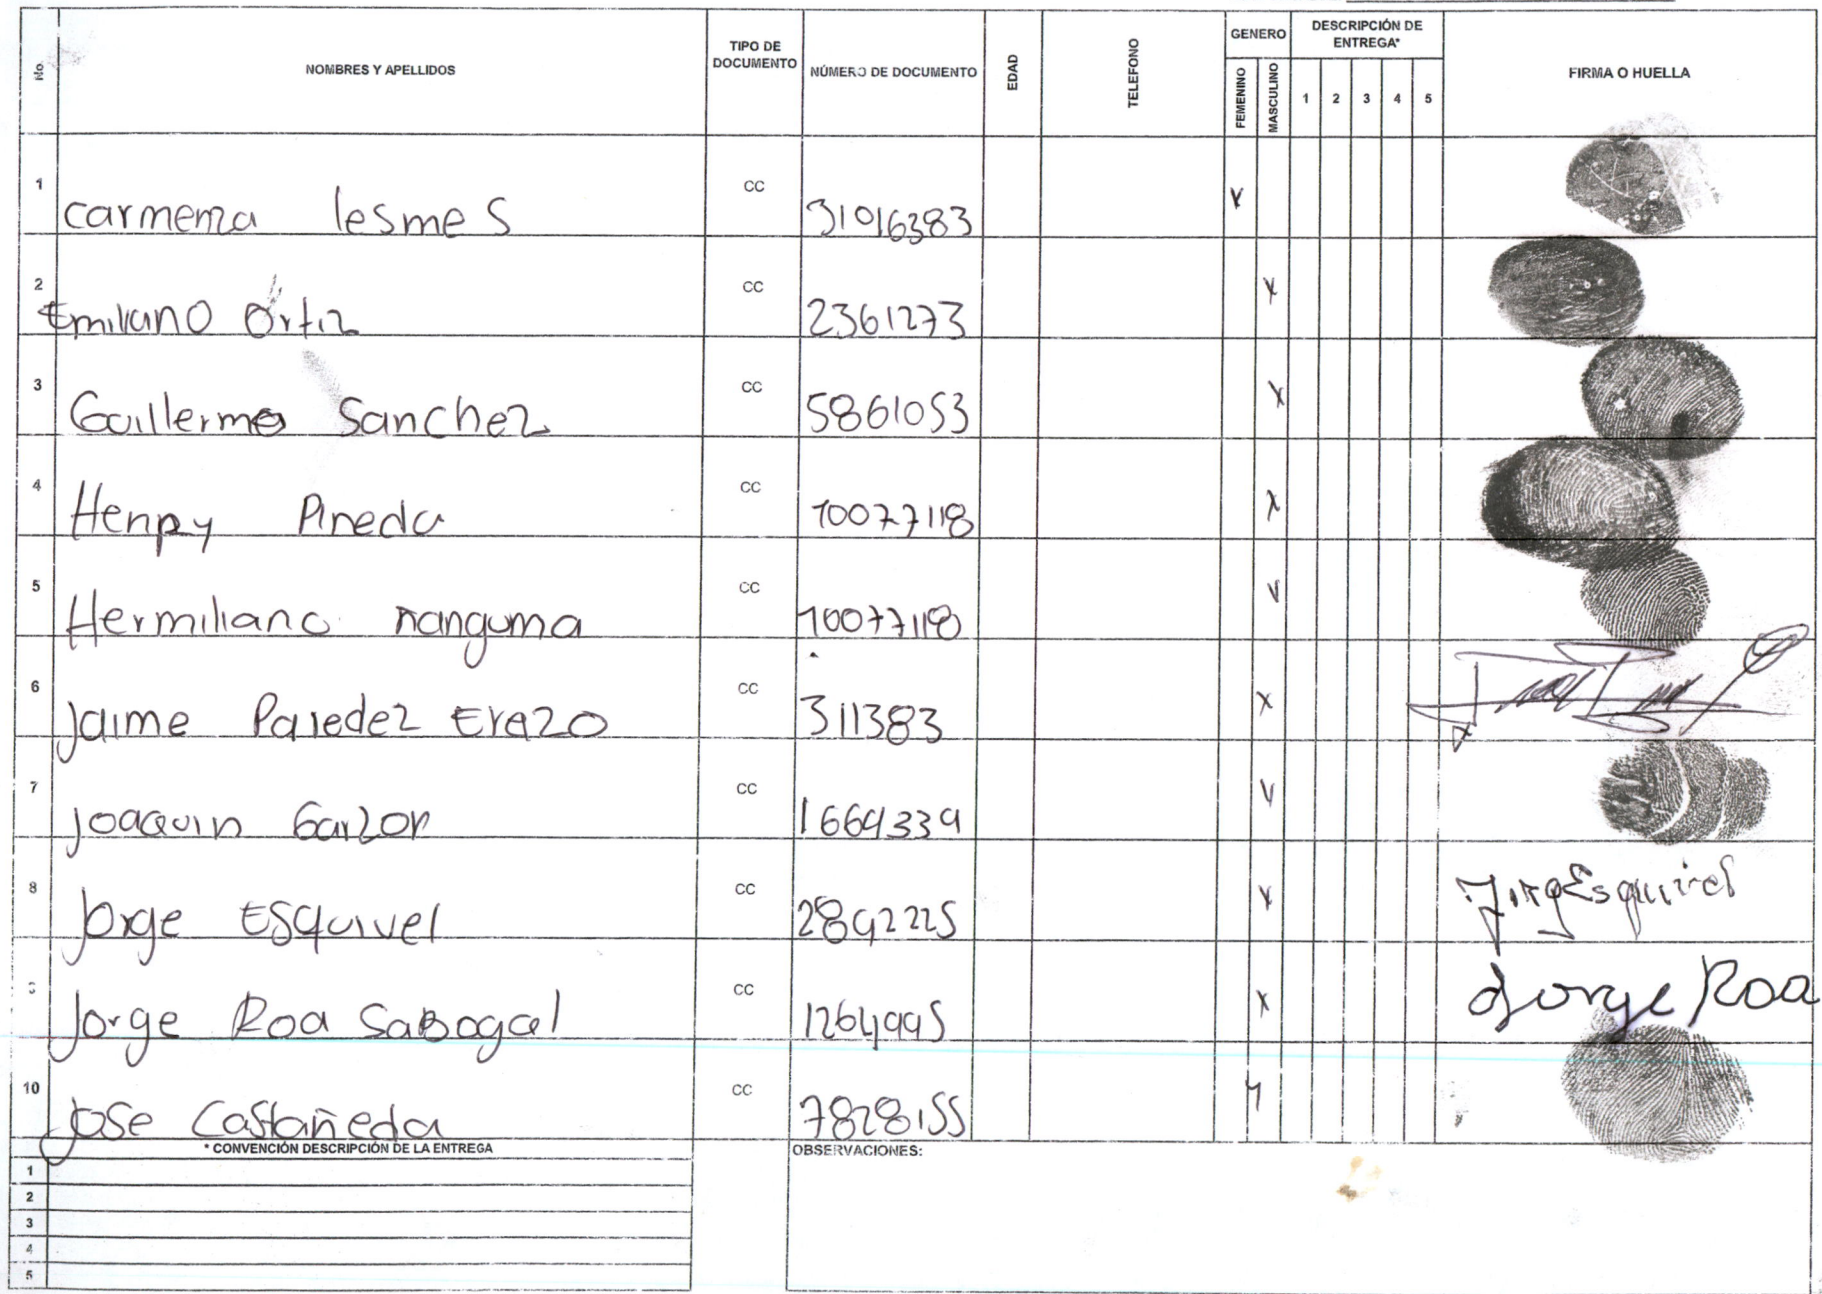 No. NOMBRES Y APELLIDOS TIPO DE DOCUMENTO NÚMERO DE DOCUMENTO EDAD TELEFONO GENERO FEMENINO MASCULINO DESCRIPCIÓN DE ENTREGA* 1 2 3 4 5 FIRMA O HUELLA
1 carmenza lesmes CC 31016383 X
2 Emiliano Ortiz CC 2361273 X
3 Guillermo Sanchez CC 5861053 X
4 Henry Pineda CC 10077118 X
5 Hermiliano CC 10077118 X
6 Jaime Paredez Erazo CC 311383 X
7 Joaquin Garzon CC X
8 Jorge Esquivel CC 2892225 X Jorg Esquivel
9 Jorge Roa Sabogal CC 1264995 X Jorge Roa
10 Jose Castañeda CC 7828155 X
* CONVENCIÓN DESCRIPCIÓN DE LA ENTREGA OBSERVACIONES:
1
2
3
4
5